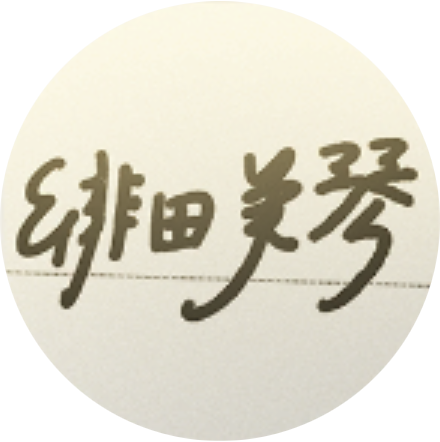 緋田美琴